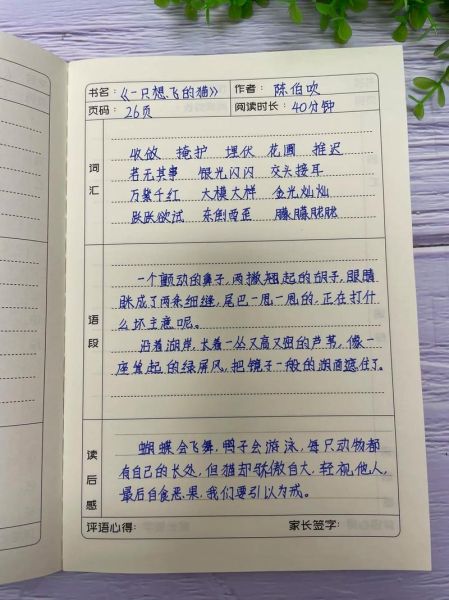 书名:《一只想飞的猫》 作者: 陈伯吹
页码: 26页 阅读时长: 40分钟
词汇
收敛 掩护 埋伏 花圃 推迟
若无其事 银光闪闪 交头接耳
万紫千红 大模大样 金光灿灿
跃跃欲试 东倒西歪 朦朦胧胧
语段
一个颤动的鼻子,两撇翘起的胡子,眼睛
眯成了两条细缝,尾巴一甩一甩的,正在打什
么坏主意呢。
沿着湖岸,长着一丛又高又密的芦苇,像一
座竖起的绿屏风,把镜子一般的湖面遮住了。
读后感
蝴蝶会飞舞,鸭子会游泳,每只动物都
有自己的长处,但猫却骄傲自大,轻视他人,
最后自食恶果,我们要引以为戒。
评语心得: 家长签字: